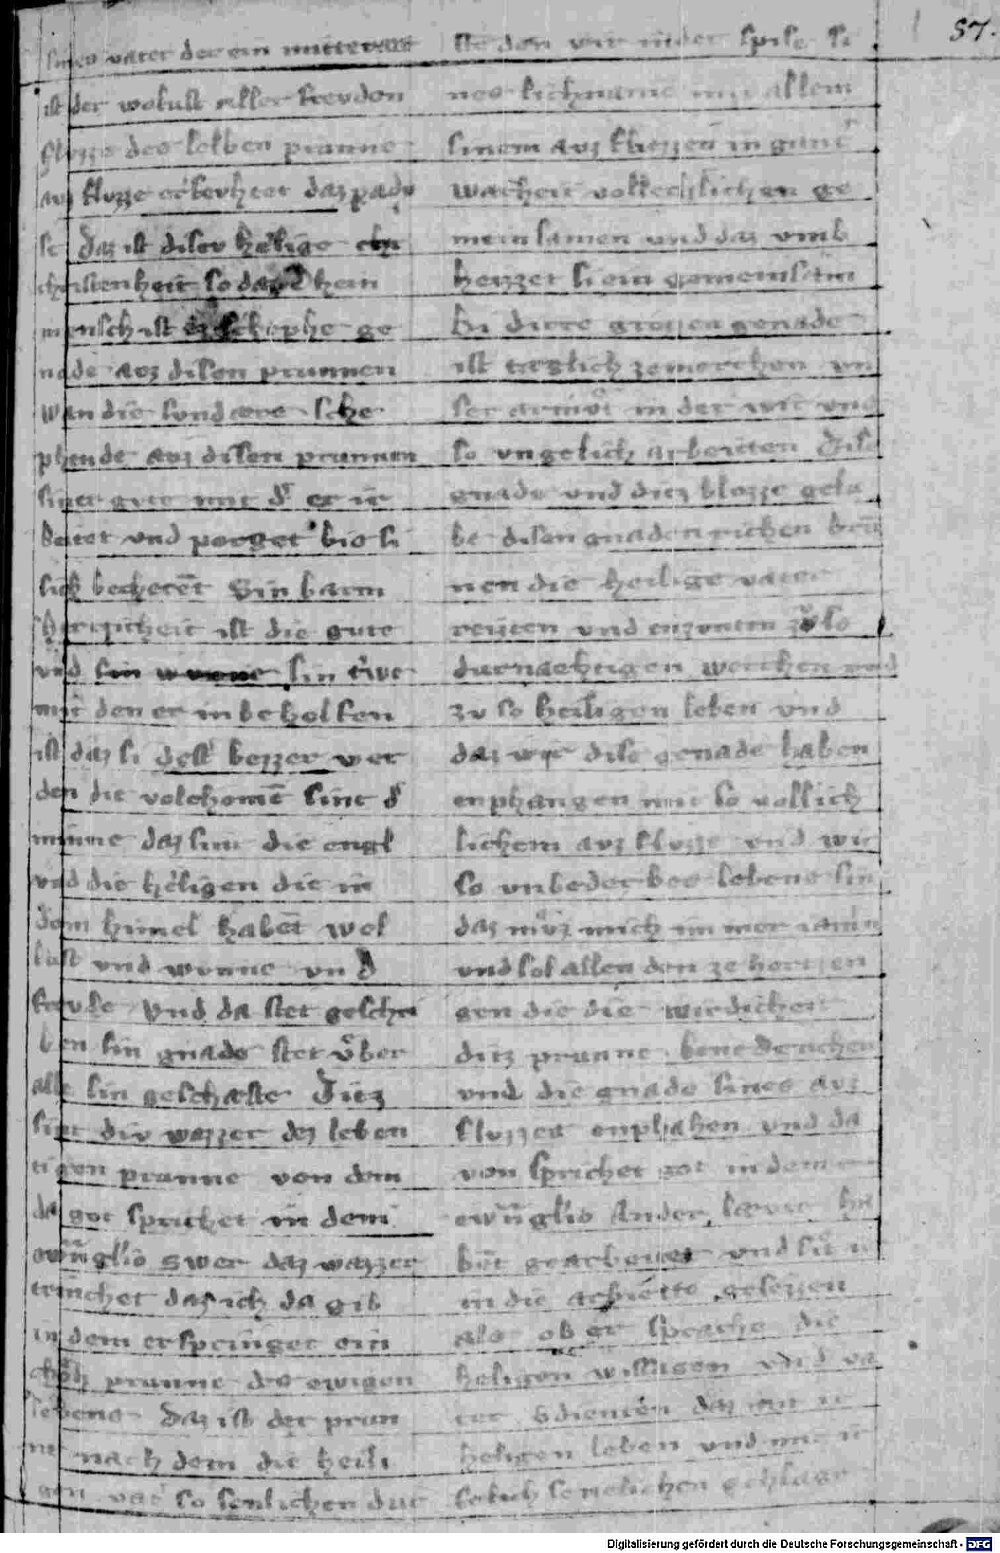 57.
sines vater der ein mittewas
ist der wolust aller freuden
fluzze des selben prunne
auz fluzze erfeuhtet daz pady
se daz ist diseu heilige chr
christenheit so daz dhein
mensch ist er schephe ge
nade auz disen prunnen
wan die sundaere sche
phende auz disen prunnen
siner gute mit d' er ir
beitet und porget bis si
sich becherēt Sin barm
herzicheit ist die gute
vnd sin triwe
mit den er in beholfen
ist daz si dest bezzer wer
den die volchomē sint d'
minne daz sint die engl
vnd die heligen die in
dem himel habēt wol
lust vnd wunne vnd
freude vnd da stet geschri
ben sin gnade stet vber
alle sin geschaefte Ditz
sint div wazzer dez leben
tigen prunne von dem
da got sprichet in dem
ewāglio swer daz wazzer
trinchet daz ich da gib
in dem erspringet ein
prunne des ewigen
lebens Daz ist der prun
ne nach dem die heili
gen vat' so senlichen dur
ste den wir in der spise si
nes lichnams mit allem
sinem auz fliezzen in gantz
warheit vollechlichen ge
mein samen und daz vmb
heizzet si ein gemeinsam
bi dirre grozzen genade
ist taeglich zemerchen vn
ser armut in der wir vns
so vngelich arbeiten dise
gnade vnd ditz blozze gela
be disen gnadenrichen brū
nen die heilige vater
reitten vnd enzunten zu so
durnaehtigen werchen vnd
zu so heiligen leben vnd
daz wir dise genade haben
enphangen mit so vollich
lichem auz fluzze vnd wir
so vnbederbes lebens sin
daz muz mich immer iamern
und sol allen den ze hertzen
gen die die wirdicheit
ditz prunne benedeiichen
vnd die gnade sines auz
fluzzes enphahen vnd da
von sprichet got in dem
ewāglio Ander laeute ha
bēt gearbeitet vnd sit ir
in die arbeitte gesezzen
als ob er spraeche die
heligen willigen vnd va
ter v'dienten daz mit ir
heligen leben vnd mit ir
solich senelichen geschlage
Digitalisierung gefördert durch die Deutsche Forschungsgemeinschaft - DFG